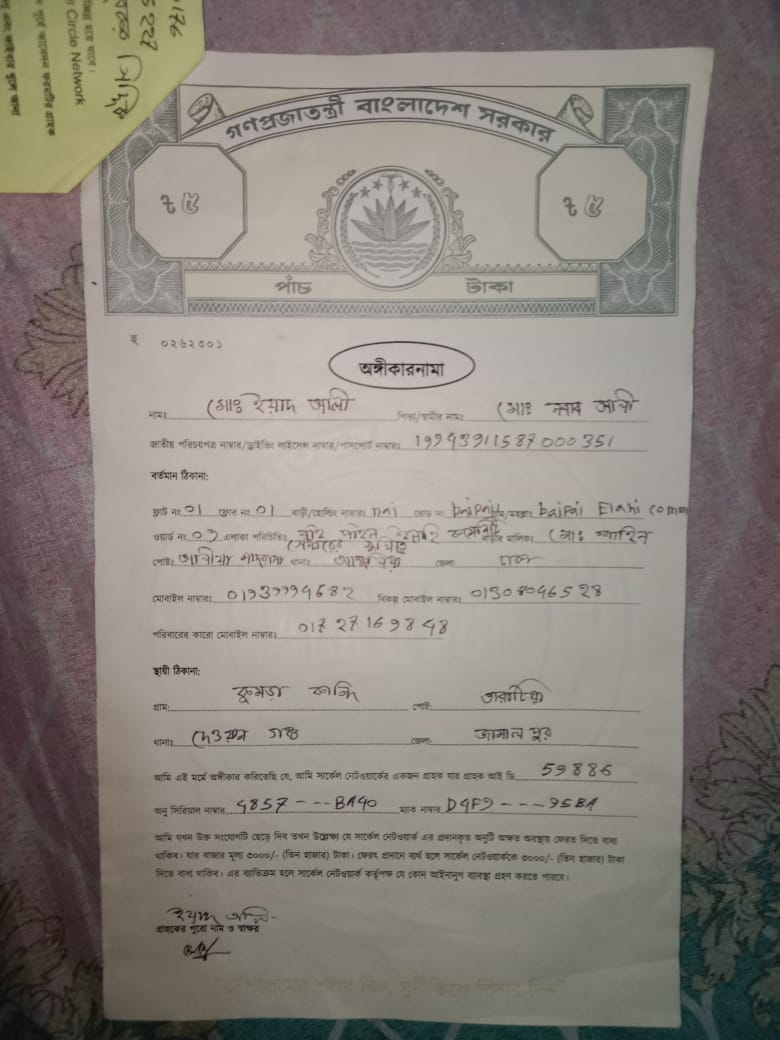 গণপ্রজাতন্ত্রী বাংলাদেশ সরকার
৳ ৫
৳ ৫
পাঁচ টাকা
০২৬২৩০১
অঙ্গীকারনামা
নামঃ মোঃ ইয়াদ আলী পিতা/স্বামীর নামঃ মোঃ নবাব আলী
জাতীয় পরিচয়পত্র নাম্বার/ড্রাইভিং লাইসেন্স নাম্বার/পাসপোর্ট নাম্বারঃ 19943911587000351
বর্তমান ঠিকানা:
ফ্ল্যাট নং 01 ফ্লোর নং 01 বাড়ী/হোল্ডিং নাম্বারঃ nai রোড নং baipail baipai Elahi comm
ওয়ার্ড নং 07 এলাকা পরিচিতিঃ মালিকঃ মোঃ শাহিন
পোষ্টঃ থানাঃ আশুলিয়া জেলাঃ ঢাকা
মোবাইল নাম্বারঃ 01939994682 বিকল্প মোবাইল নাম্বারঃ 01308046528
পরিবারের কারো মোবাইল নাম্বারঃ 01727169848
স্থায়ী ঠিকানা:
গ্রামঃ কুমড়া কান্দি পোষ্টঃ তারাটিয়া
থানাঃ দেওয়ান গঞ্জ জেলাঃ জামাল পুর
আমি এই মর্মে অঙ্গীকার করিতেছি যে, আমি সার্কেল নেটওয়ার্কের একজন গ্রাহক যার গ্রাহক আই ডি 59886
অনু সিরিয়াল নাম্বার 4857---BA40 ম্যাক নাম্বার D4F9----95BA
আমি যখন উক্ত সংযোগটি ছেড়ে দিব তখন উল্লেখ্য যে সার্কেল নেটওয়ার্ক এর প্রদানকৃত অনুটি অক্ষত অবস্থায় ফেরত দিতে বাধ্য
থাকিব। যার বাজার মূল্য ৩০০০/- (তিন হাজার) টাকা। ফেরৎ প্রদানে ব্যর্থ হলে সার্কেল নেটওয়ার্ককে ৩০০০/- (তিন হাজার) টাকা
দিতে বাধ্য থাকিব। এর ব্যতিক্রম হলে সার্কেল নেটওয়ার্ক কর্তৃপক্ষ যে কোন আইনানুগ ব্যবস্থা গ্রহণ করতে পারবে।
ইয়াদ আলী
গ্রাহকের পুরো নাম ও স্বাক্ষর
"দেশপ্রেমের শপথ নিন, দুর্নীতিকে বিদায় দিন"
Circle Network